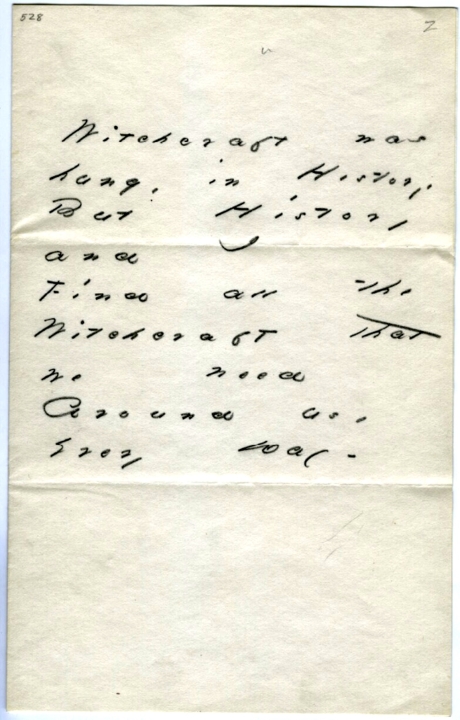 528
Witchcraft was
hung, in History,
But History
and
Find all the
Witchcraft that
we need
Around us,
Every Day -